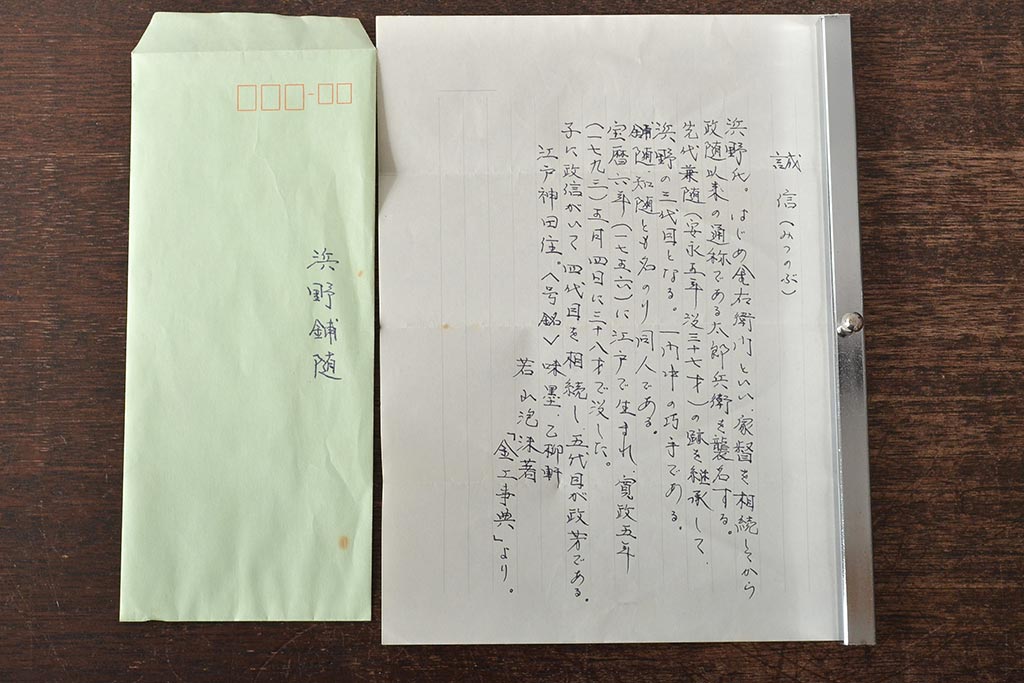 誠信(みつのぶ)
浜野氏。はじめ金右衛門といい、家督を相続してから
政随以来の通称である太郎兵衛を襲名する。
先代兼随(安永五年没三十七才)の跡を継承して、
浜野の三代目となる。一門中の巧手である。
鋪随、知随とも名のり同人である。
宝暦六年(一七五六)に江戸で生まれ、寛政五年
(一七九三)五月四日に三十八才で没した。
子に政信がいて、四代目を相続し、五代目が政芳である。
江戸神田住。〈号銘〉味墨、乙柳軒
若山泡沫著
「金工事典」より。
浜野鋪随